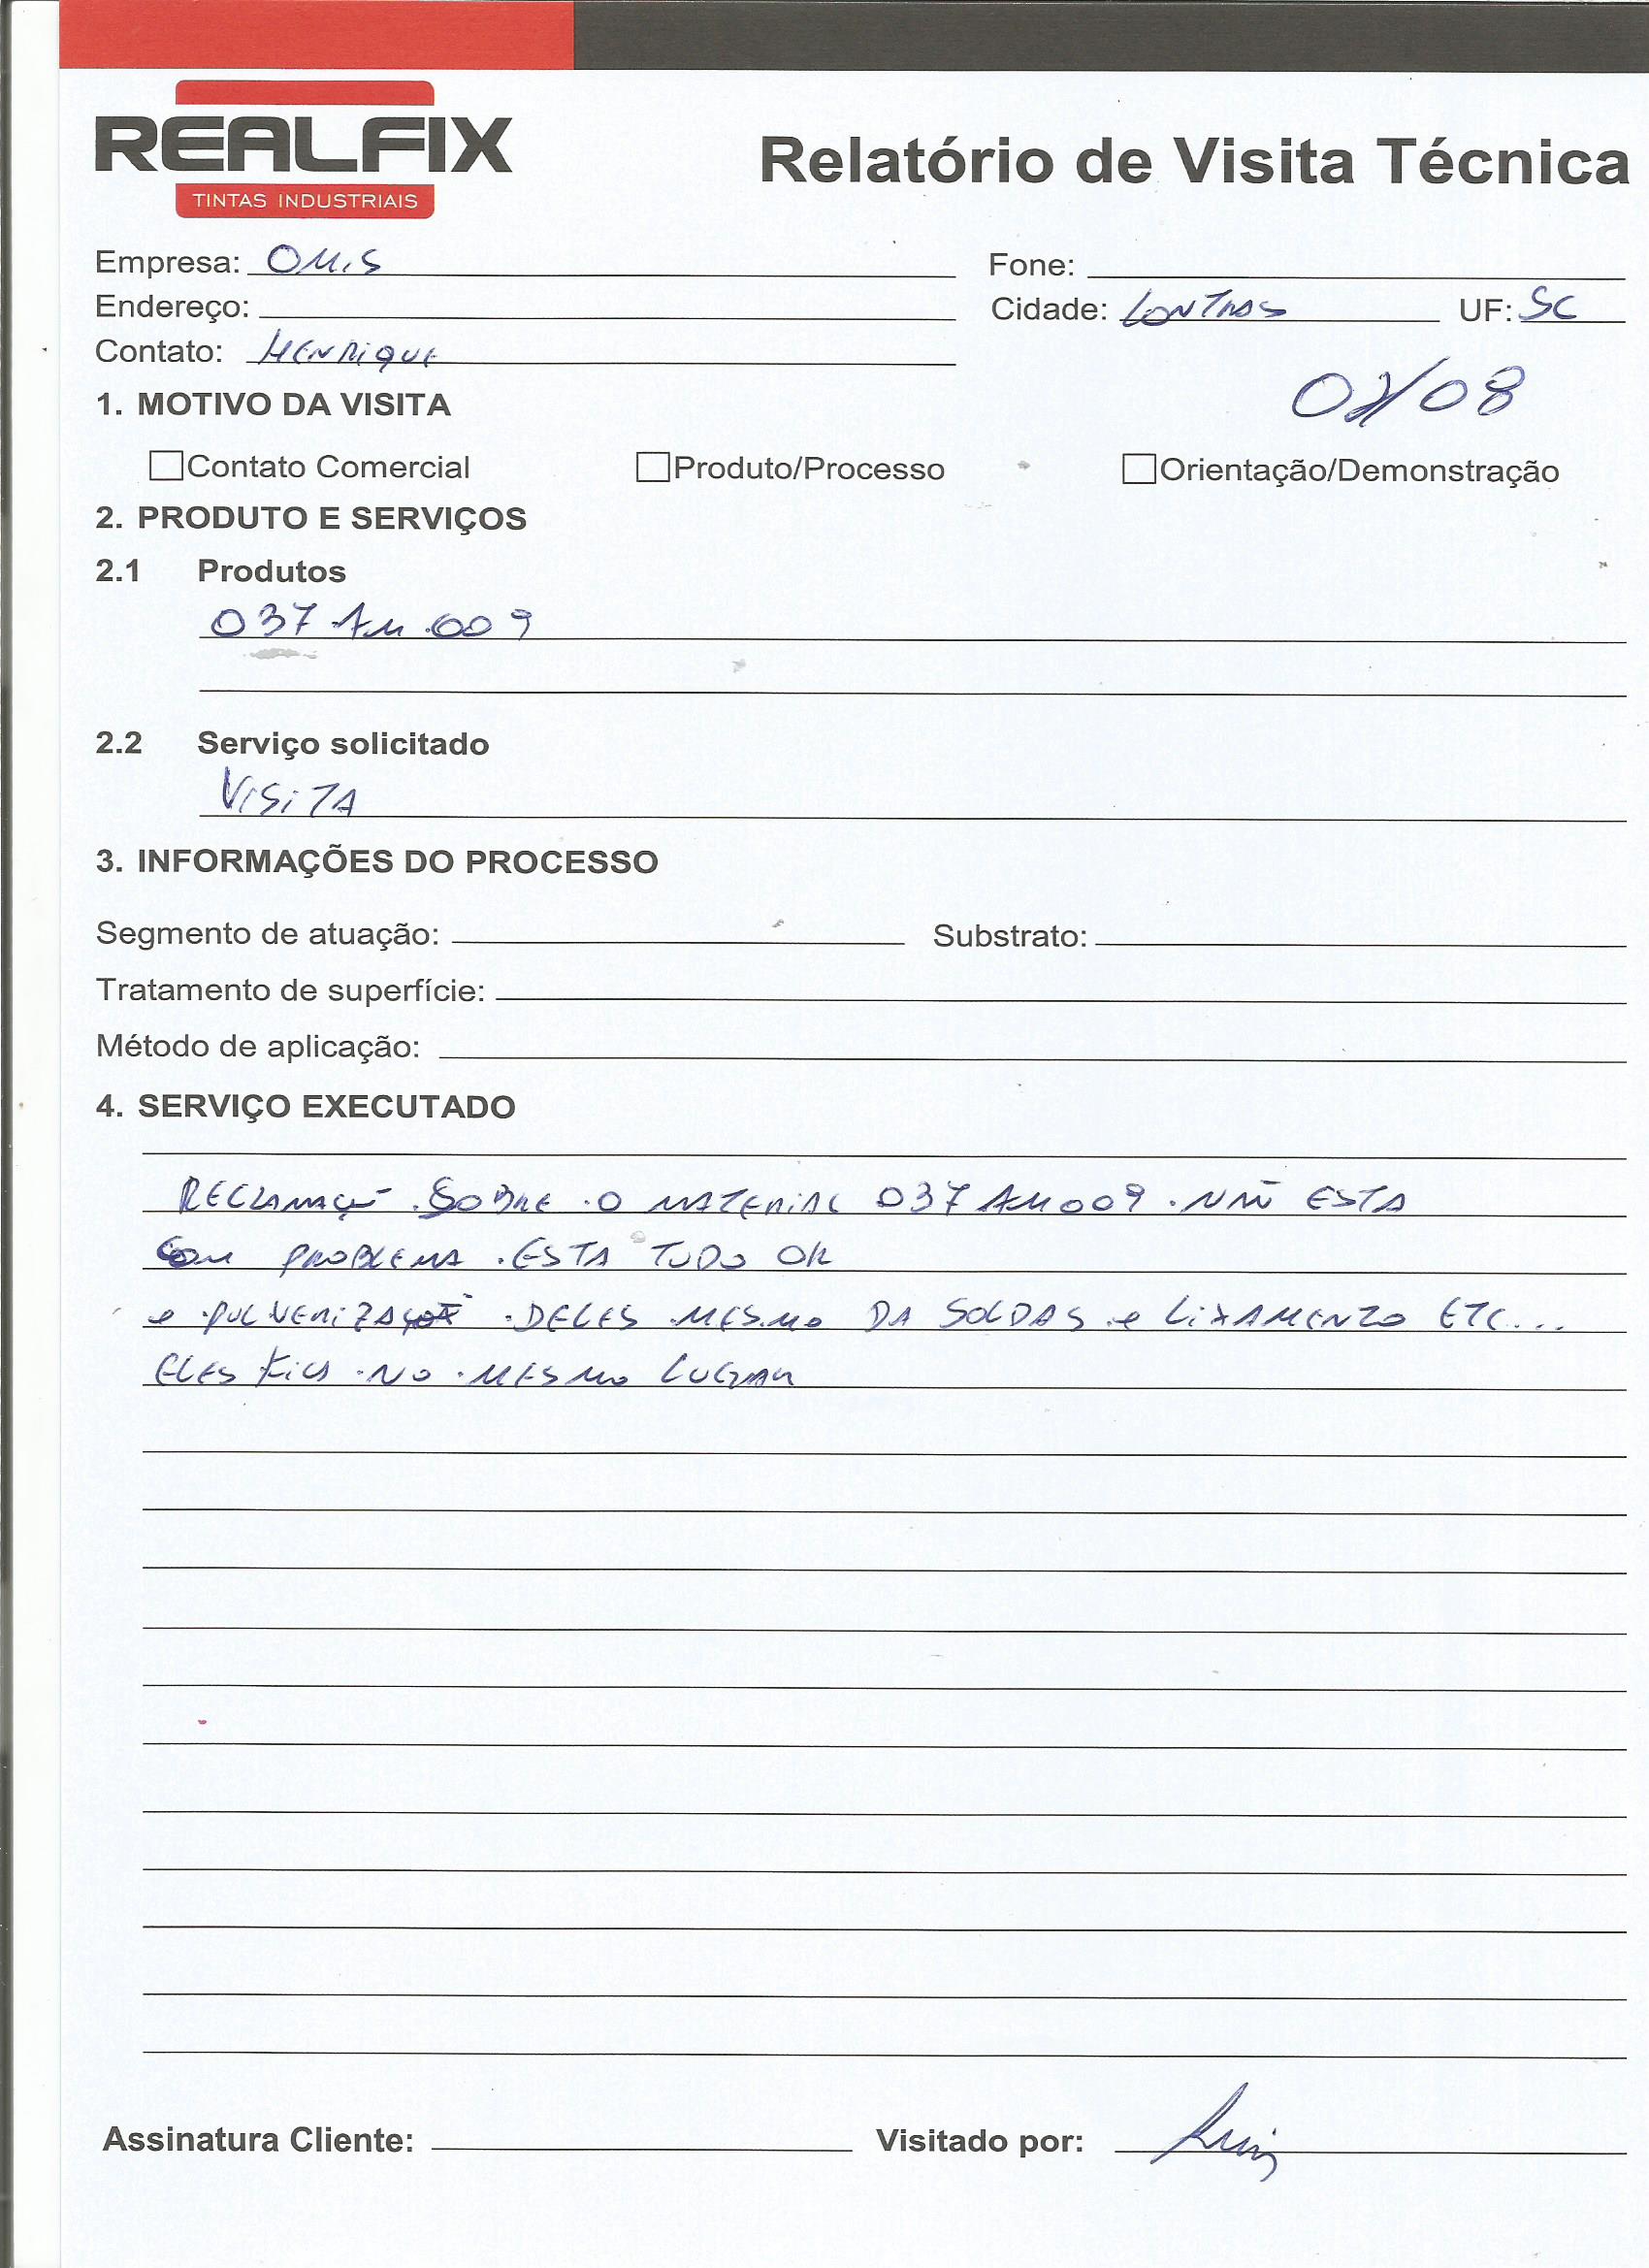 REALFIX
TINTAS INDUSTRIAIS
Relatório de Visita Técnica
Empresa: OMIS Fone:
Endereço: Cidade: LONTRAS UF: SC
Contato: HENRIQUE
1. MOTIVO DA VISITA
Contato Comercial Produto/Processo Orientação/Demonstração
2. PRODUTO E SERVIÇOS
2.1 Produtos
037 AM.009
2.2 Serviço solicitado
VISITA
3. INFORMAÇÕES DO PROCESSO
Segmento de atuação: Substrato:
Tratamento de superfície:
Método de aplicação:
4. SERVIÇO EXECUTADO
SOBRE O MATERIAL 037 AM009. NÃO ESTA
COM PROBLEMA. ESTA TUDO OK
e DELES MESMO DA SOLDAS e LIXAMENTO ETC...
ELES NO MESMO LUGAR
Assinatura Cliente: Visitado por: Luiz